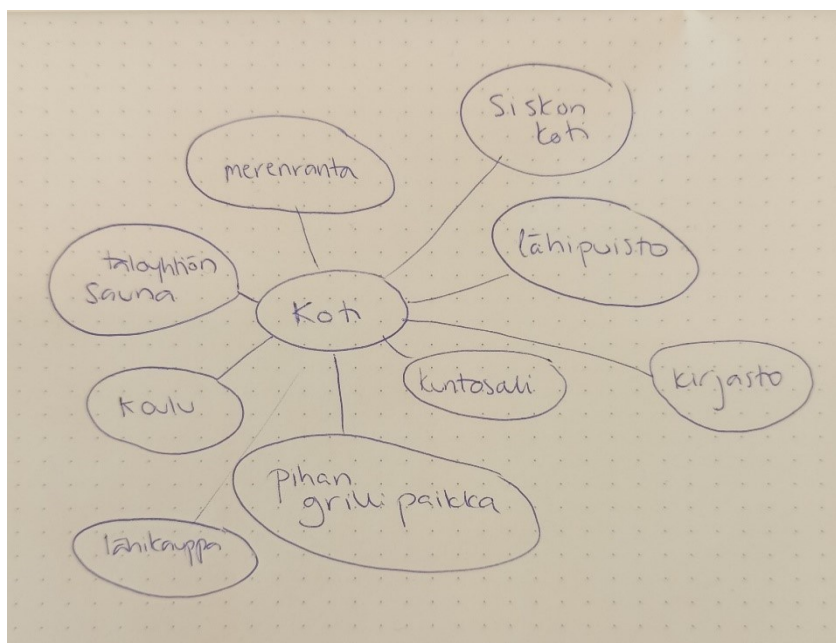 Siskon
koti
merenranta
lähipuisto
taloyhtiön
sauna
Koti
kirjasto
kuntosali
Koulu
pihan
grillipaikka
lähikauppa